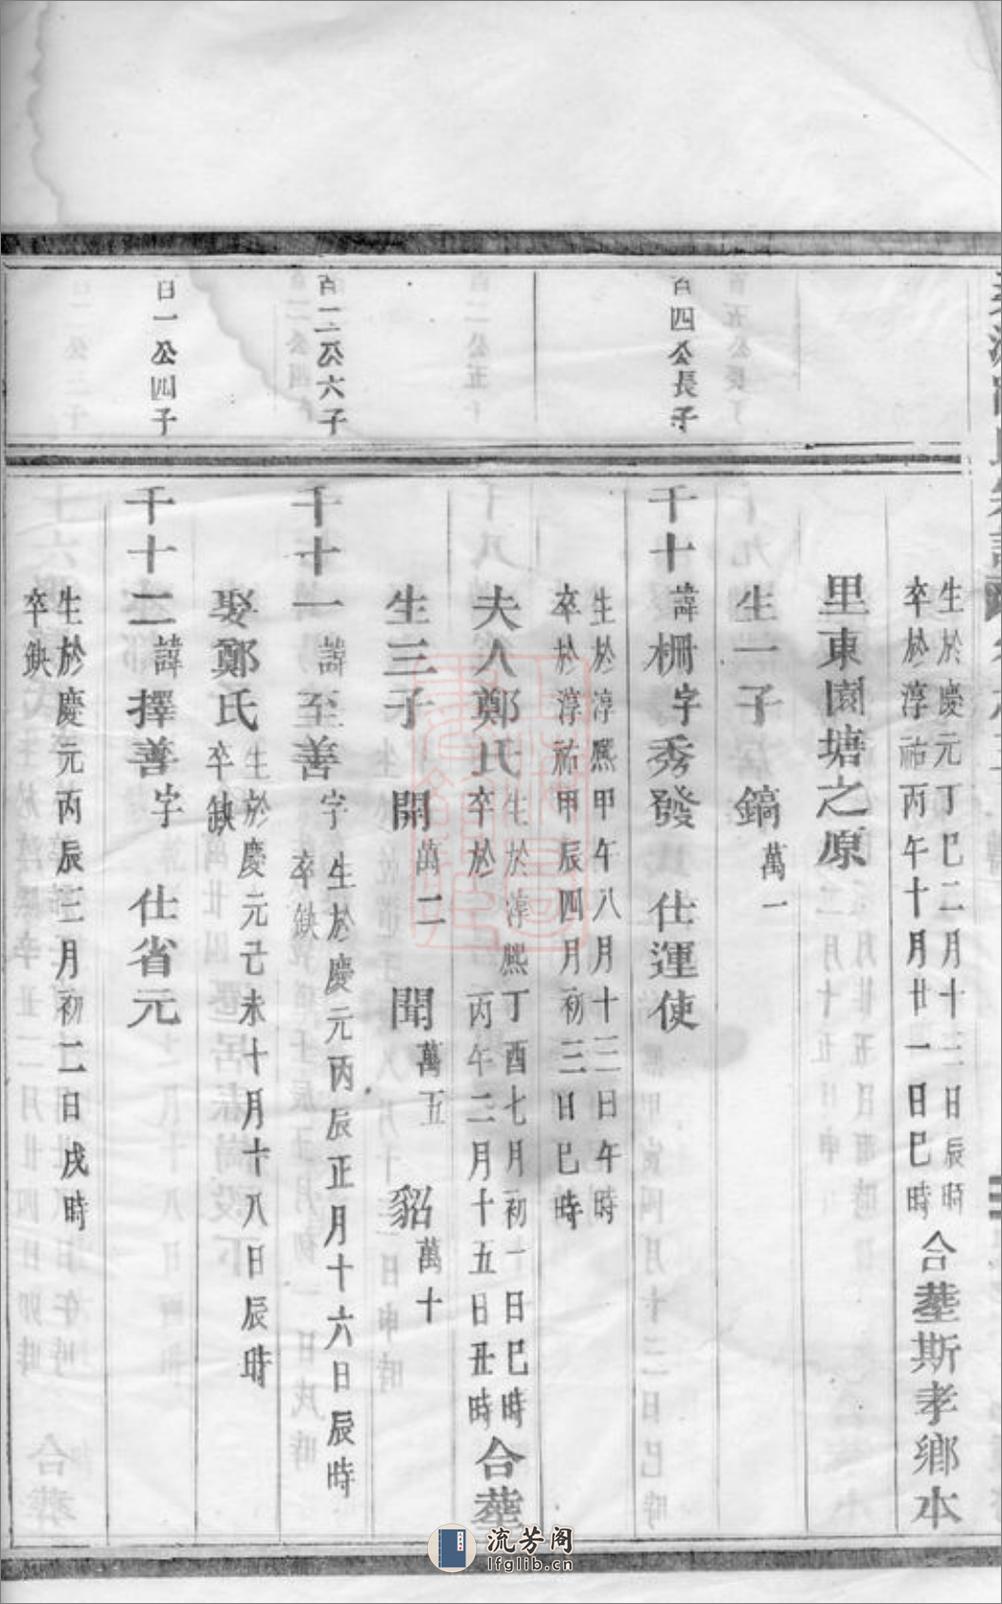 生於慶元丁巳二月十三日辰時
卒於淳祐丙午十月廿一日巳時
合葬斯孝鄉本
里東園塘之原
生一子 鎬萬一
百四公長子
千十諱柵字秀發 仕運使
生於淳熙甲午八月十三日午時
卒於淳祐甲辰四月初三日巳時
夫人鄭氏
生於淳熙丁酉七月初一日巳時
卒於 丙午二月十五日丑時
合葬
生三子 開萬二 聞萬五 貂萬十
百二公六子
千十一諱至善字
生於慶元丙辰正月十六日辰時
卒缺
娶鄭氏
生於慶元己未十月十八日辰時
卒缺
百一公四子
千十二諱擇善字 仕省元
生於慶元丙辰三月初二日戌時
卒缺
流芳阁
lfglib.cn